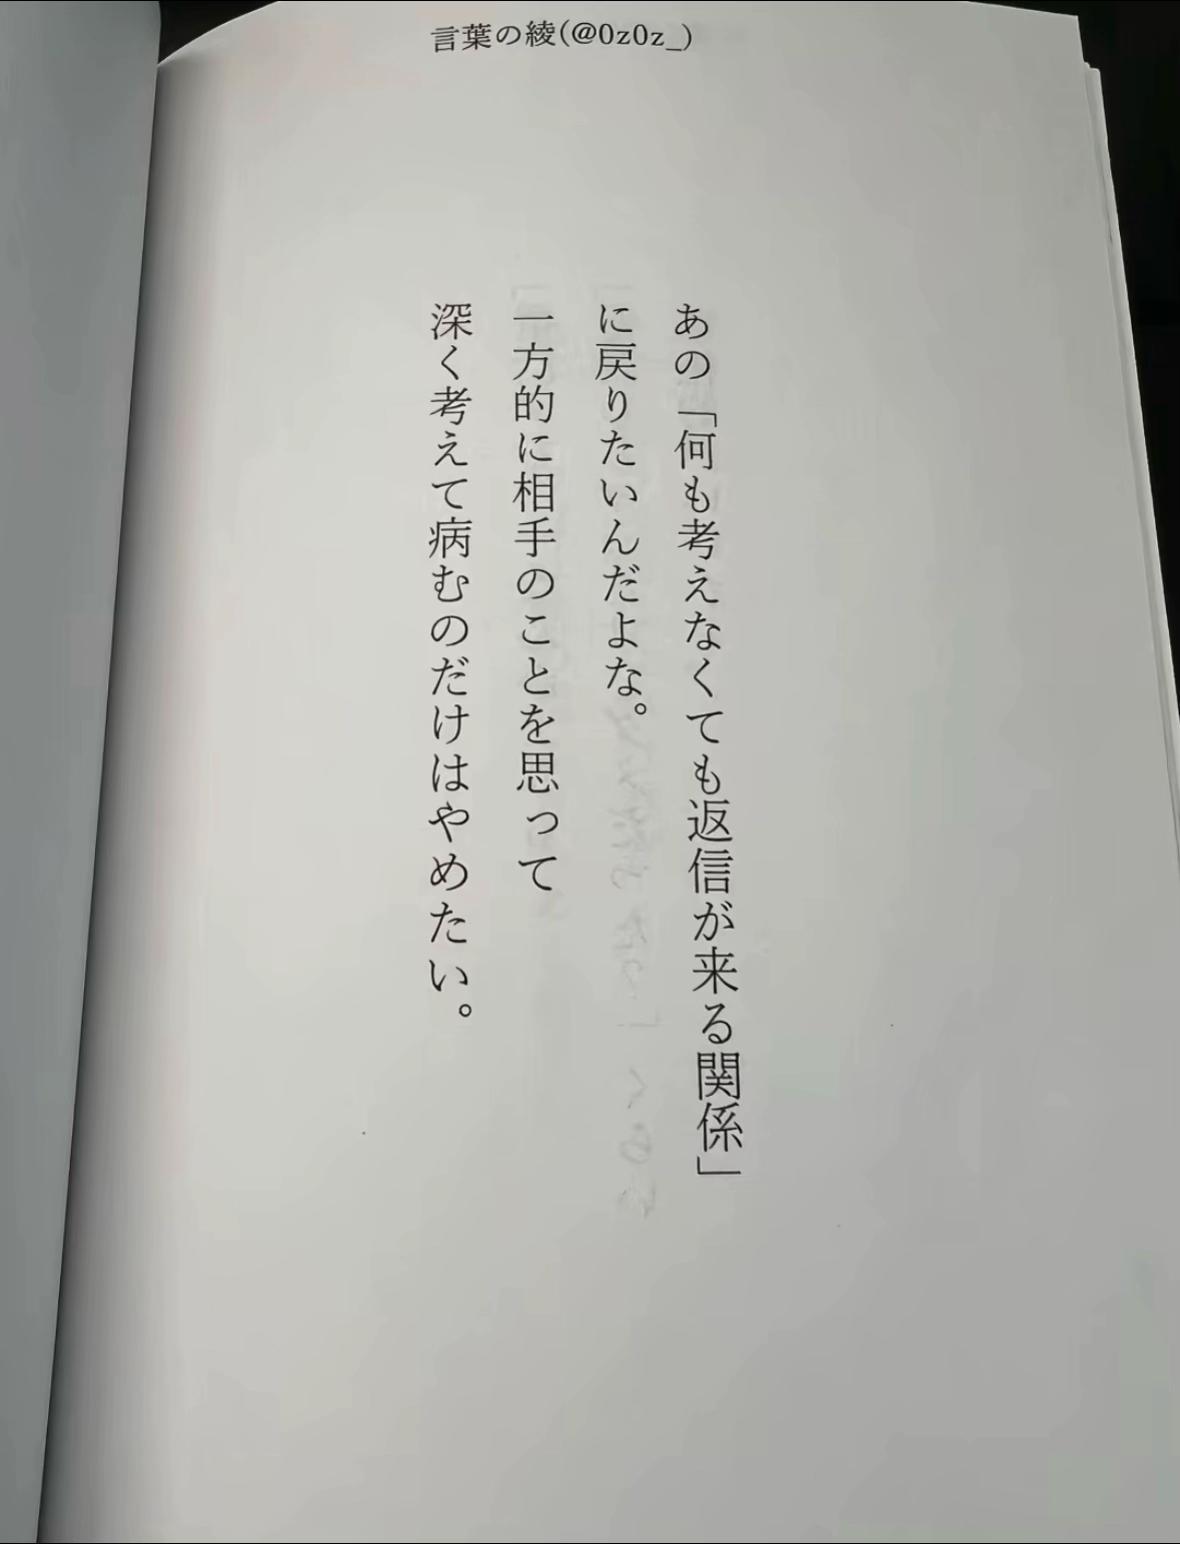 言葉の綾(@0z0z_)
あの「何も考えなくても返信が来る関係」
に戻りたいんだよな。
一方的に相手のことを思って
深く考えて病むのだけはやめたい。